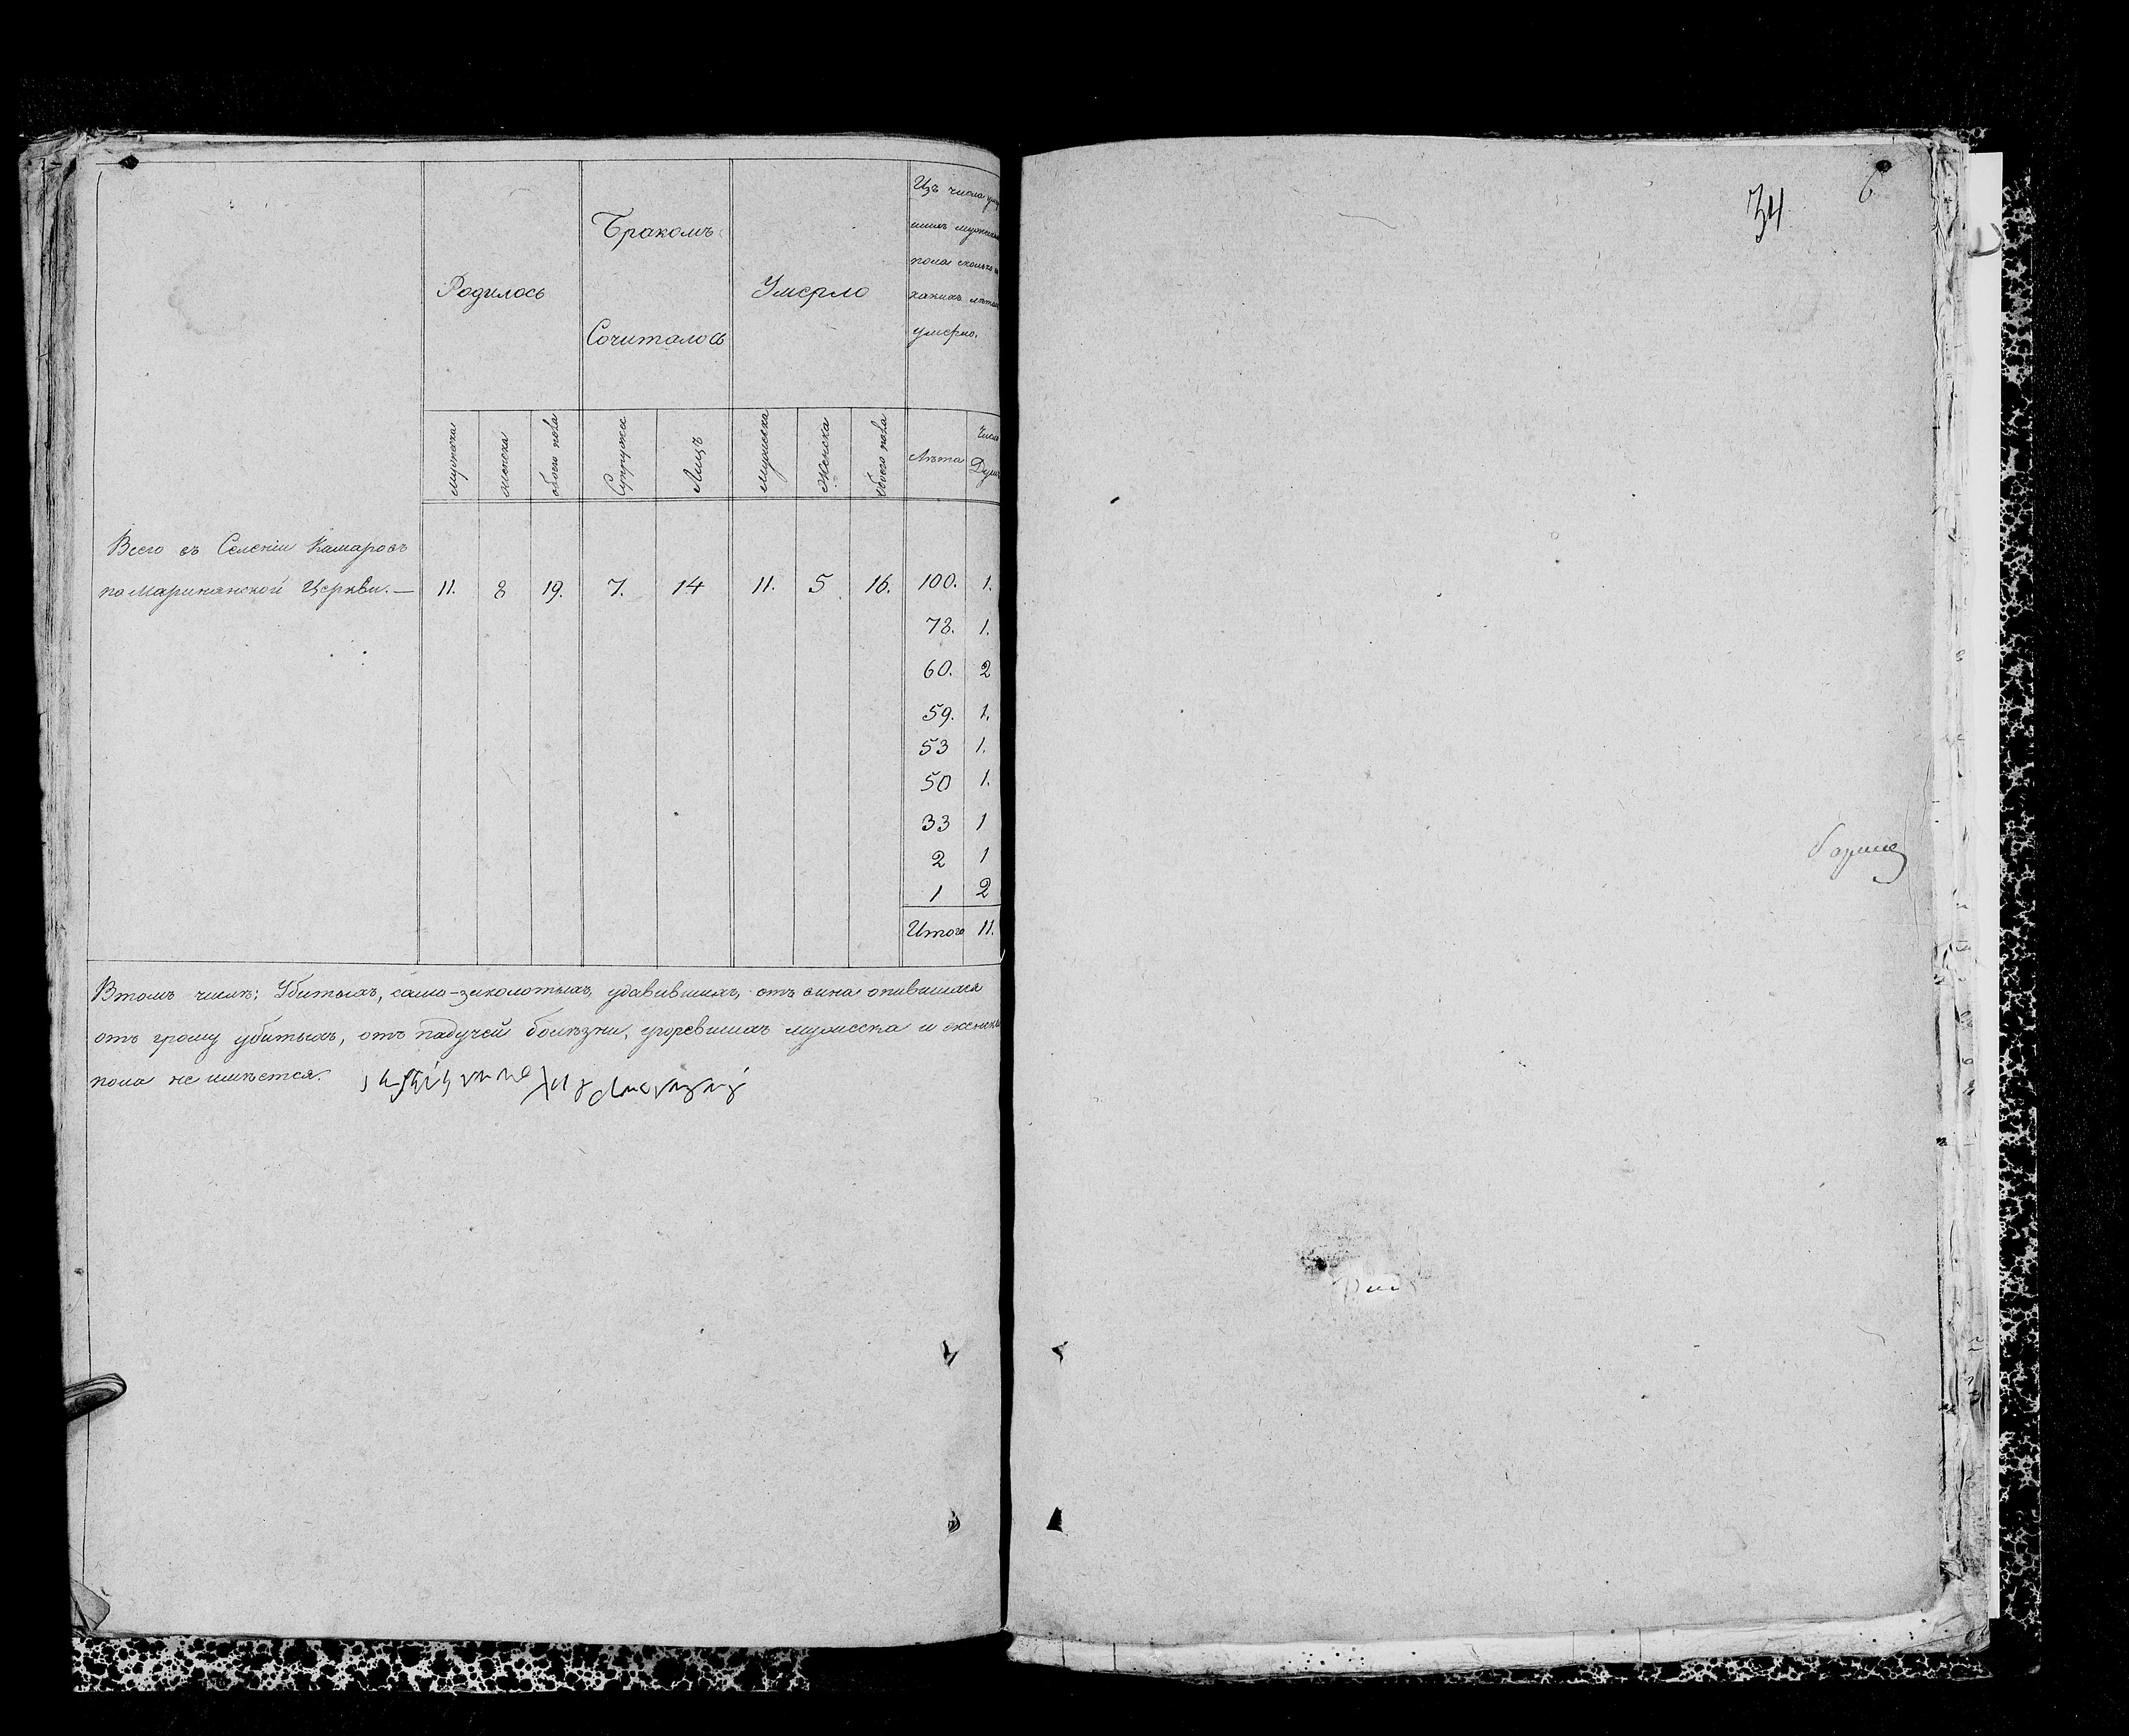 Родилось
Бракомъ
Сочиталось
Умерло
Изъ числа
шихъ мужеска
пола сколько
какихъ лѣтъ
умерло.
мужеска
женска
обоего пола
Супружес
Лицъ
мужеска
женска
обоего пола
Лѣта
Число
Душъ
Всего въ Селеніи Камаровъ
по Мариканской Церкви.—
11. 8 19. 7. 14 11. 5 16. 100. 1.
78. 1.
60. 2
59. 1.
53 1.
50 1.
33 1
2 1
1 2
Итого 11.
Втомъ числѣ: Убитыхъ, само-заколотыхъ, удавившихъ, отъ вина опившихся
отъ грому убитыхъ, отъ падучей болѣзни, угоревшихъ мужеска и женска
пола не имѣется.
34
6